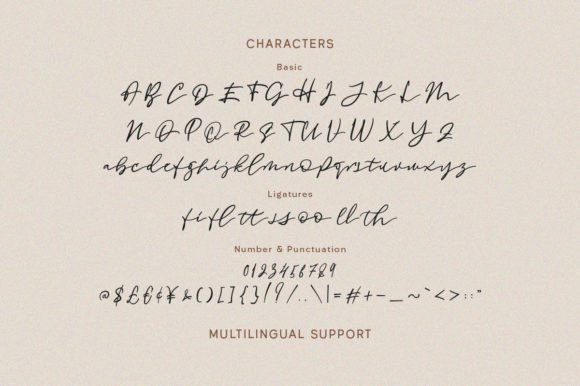 CHARACTERS
Basic
A B C D E F G H I J K L M
N O P Q R S T U V W X Y Z
abcdefghijklmnopqrstuvwxyz
Ligatures
fi fl tt ss oo ll th
Number & Punctuation
0123456789
@$£€¢¥&()[]{}!?/..\|=#+-_~`<>::"
MULTILINGUAL SUPPORT